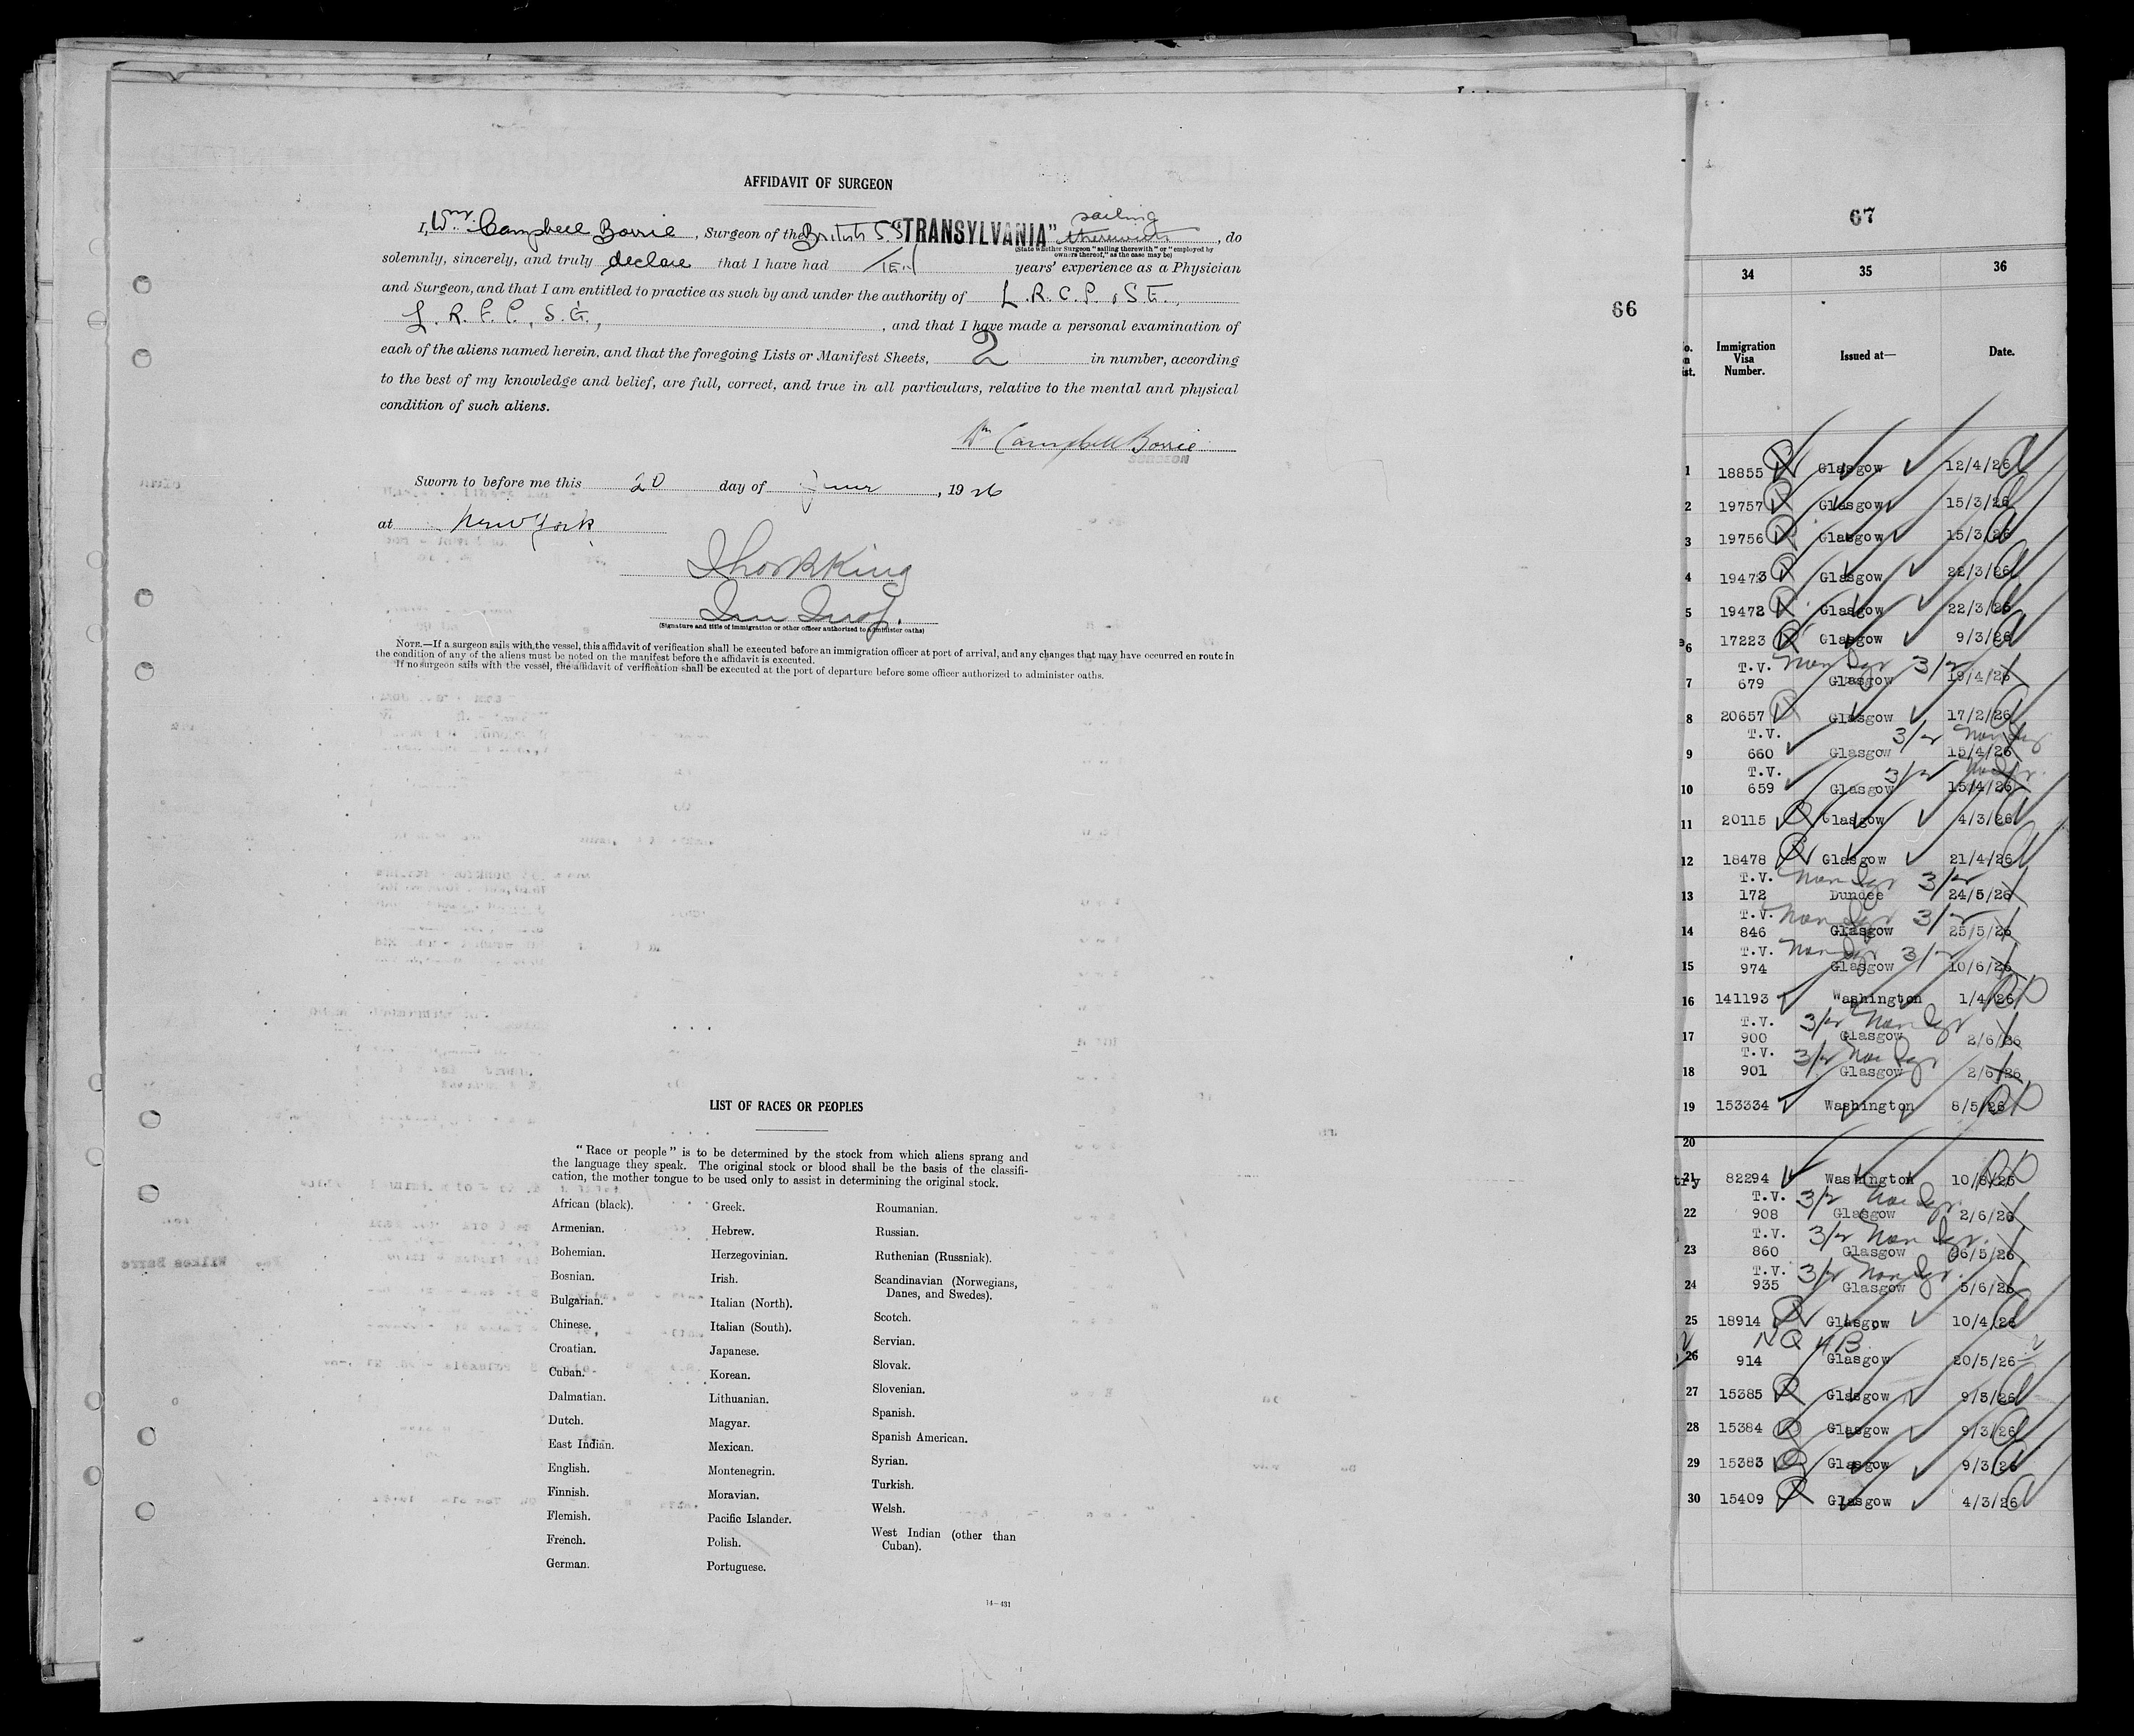 AFFIDAVIT OF SURGEON
I, Wm. Campbell Borrie, Surgeon of the British S.S. "TRANSYLVANIA" sailing therewith, do
(State whether Surgeon "sailing therewith" or "employed by owners thereof," as the case may be)
solemnly, sincerely, and truly declare that I have had ten years' experience as a Physician
and Surgeon, and that I am entitled to practice as such by and under the authority of L.R.C.P., S.E.,
L.R.F.P., S.G., and that I have made a personal examination of
each of the aliens named herein, and that the foregoing Lists or Manifest Sheets, 2 in number, according
to the best of my knowledge and belief, are full, correct, and true in all particulars, relative to the mental and physical
condition of such aliens.
Wm Campbell Borrie
SURGEON
Sworn to before me this 20 day of June, 1926
at New York
(Signature and title of immigration or other officer authorized to administer oaths)
NOTE.—If a surgeon sails with the vessel, this affidavit of verification shall be executed before an immigration officer at port of arrival, and any changes that may have occurred en route in
the condition of any of the aliens must be noted on the manifest before the affidavit is executed.
If no surgeon sails with the vessel, the affidavit of verification shall be executed at the port of departure before some officer authorized to administer oaths.
66
LIST OF RACES OR PEOPLES
"Race or people" is to be determined by the stock from which aliens sprang and
the language they speak. The original stock or blood shall be the basis of the classifi-
cation, the mother tongue to be used only to assist in determining the original stock.
African (black).
Armenian.
Bohemian.
Bosnian.
Bulgarian.
Chinese.
Croatian.
Cuban.
Dalmatian.
Dutch.
East Indian.
English.
Finnish.
Flemish.
French.
German.
Greek.
Hebrew.
Herzegovinian.
Irish.
Italian (North).
Italian (South).
Japanese.
Korean.
Lithuanian.
Magyar.
Mexican.
Montenegrin.
Moravian.
Pacific Islander.
Polish.
Portuguese.
Roumanian.
Russian.
Ruthenian (Russniak).
Scandinavian (Norwegians,
Danes, and Swedes).
Scotch.
Servian.
Slovak.
Slovenian.
Spanish.
Spanish American.
Syrian.
Turkish.
Welsh.
West Indian (other than
Cuban).
14—431
67
34 35 36
Immigration Visa Number. Issued at— Date.
1 18855 Glasgow 12/4/26
2 19757 Glasgow 15/3/26
3 19756 Glasgow 15/3/26
4 19473 Glasgow 22/3/26
5 19472 Glasgow 22/3/26
6 17223 Glasgow 9/3/26
T.V.
7 679 Glasgow 19/4/26
8 20657 Glasgow 17/2/26
T.V.
9 660 Glasgow 15/4/26
T.V.
10 659 Glasgow 15/4/26
11 20115 Glasgow 4/3/26
12 18478 Glasgow 21/4/26
T.V.
13 172 Dundee 24/5/26
T.V.
14 846 Glasgow 25/5/26
T.V.
15 974 Glasgow 10/6/26
16 141193 Washington 1/4/26 RP
T.V.
17 900 Glasgow 2/6/26
T.V.
18 901 Glasgow 2/6/26
19 153334 Washington 8/5/26 RP
20
21 82294 Washington RP
T.V.
22 908 Glasgow 2/6/26
T.V.
23 860 Glasgow 26/5/26
T.V.
24 935 Glasgow 5/6/26
25 18914 Glasgow 10/4/26
NQ 4B
26 914 Glasgow 20/5/26
27 15385 Glasgow 9/3/26
28 15384 Glasgow 9/3/26
29 15383 Glasgow 9/3/26
30 15409 Glasgow 4/3/26